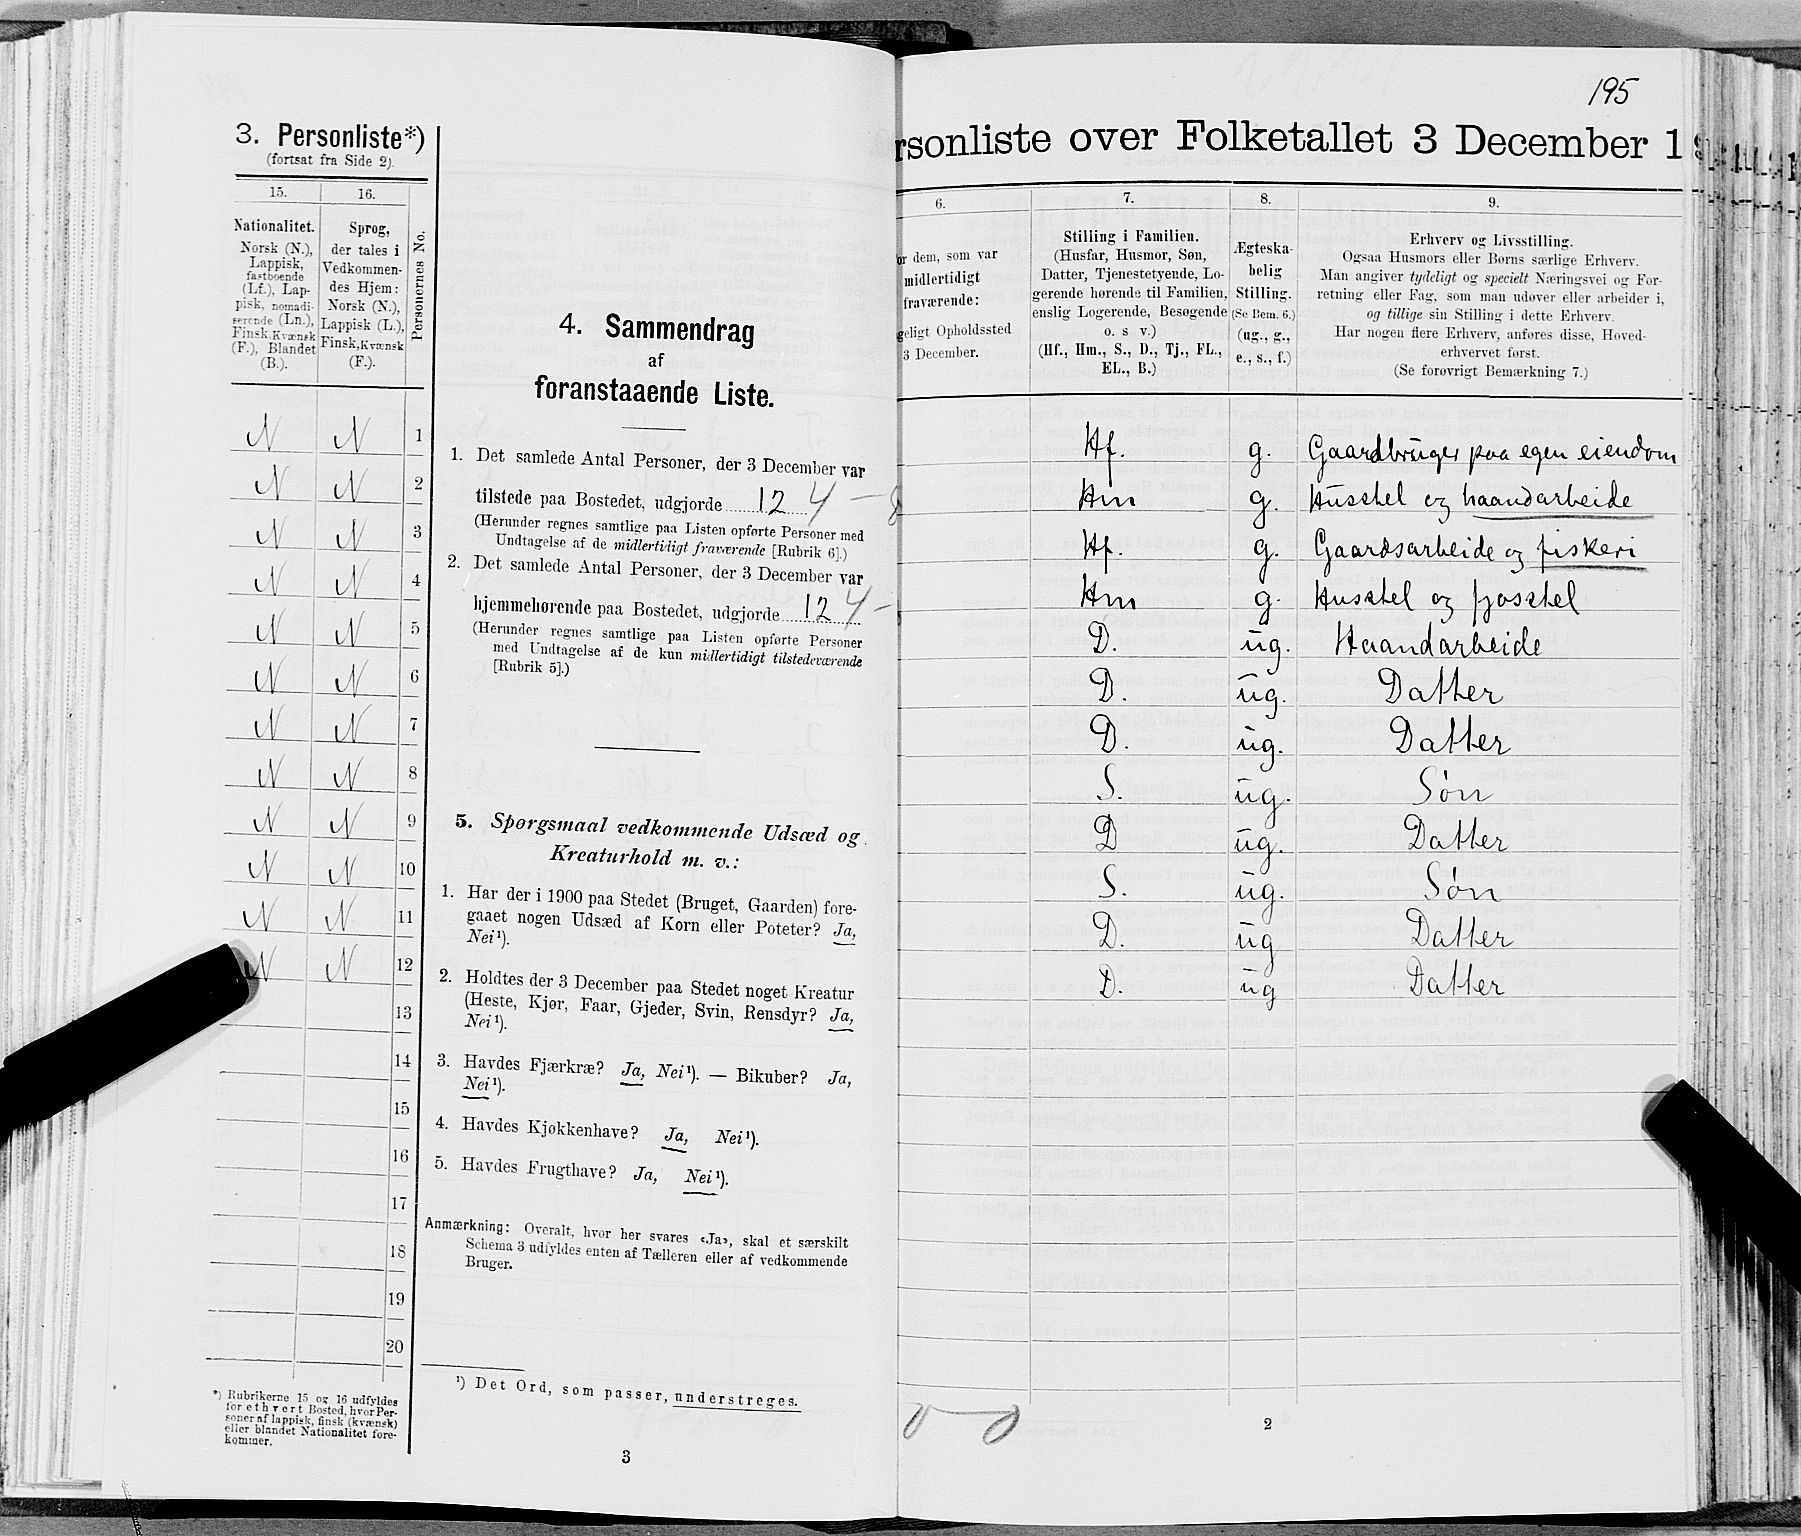 3. Personliste*)
(fortsat fra Side 2).
15. 16.
Nationalitet.
Norsk (N.),
Lappisk,
fastboende
(Lf.), Lap-
pisk, nomadi-
serende (Ln.),
Finsk, Kvænsk
(F.), Blandet
(B.).
Sprog,
der tales i
Vedkommen-
des Hjem:
Norsk (N.),
Lappisk (L.),
Finsk, Kvænsk
(F.).
Personernes No.
N N 1
N N 2
N N 3
N N 4
N N 5
N N 6
N N 7
N N 8
N N 9
N N 10
N N 11
N N 12
13
14
15
16
17
18
19
20
*) Rubrikerne 15 og 16 udfyldes
for ethvert Bosted, hvor Per-
soner af lappisk, finsk (kvænsk)
eller blandet Nationalitet fore-
kommer.
4. Sammendrag
af
foranstaaende Liste.
1. Det samlede Antal Personer, der 3 December var
tilstede paa Bostedet, udgjorde 12 4 – 8
(Herunder regnes samtlige paa Listen opførte Personer med
Undtagelse af de midlertidigt fraværende [Rubrik 6].)
2. Det samlede Antal Personer, der 3 December var
hjemmehørende paa Bostedet, udgjorde 12 4 –
(Herunder regnes samtlige paa Listen opførte Personer
med Undtagelse af de kun midlertidigt tilstedeværende
[Rubrik 5].)
5. Spørgsmaal vedkommende Udsæd og
Kreaturhold m. v.:
1. Har der i 1900 paa Stedet (Bruget, Gaarden) fore-
gaaet nogen Udsæd af Korn eller Poteter? Ja,
Nei¹).
2. Holdtes der 3 December paa Stedet noget Kreatur
(Heste, Kjør, Faar, Gjeder, Svin, Rensdyr? Ja,
Nei¹).
3. Havdes Fjærkræ? Ja, Nei¹). — Bikuber? Ja,
Nei¹).
4. Havdes Kjøkkenhave? Ja, Nei¹).
5. Havdes Frugthave? Ja, Nei¹).
Anmærkning: Overalt, hvor her svares «Ja», skal et særskilt
Schema 3 udfyldes enten af Tælleren eller af vedkommende
Bruger.
¹) Det Ord, som passer, understreges.
3
195
rsonliste over Folketallet 3 December 1
6. 7. 8. 9.
or dem, som var
midlertidigt
fraværende:
geligt Opholdssted
3 December.
Stilling i Familien.
(Husfar, Husmor, Søn,
Datter, Tjenestetyende, Lo-
gerende hørende til Familien,
enslig Logerende, Besøgende
o. s v.)
(Hf., Hm., S., D., Tj., FL.,
EL., B.)
Ægteska-
belig
Stilling.
(Se Bem. 6.)
(ug., g.,
e., s., f.)
Erhverv og Livsstilling.
Ogsaa Husmors eller Børns særlige Erhverv.
Man angiver tydeligt og specielt Næringsvei og For-
retning eller Fag, som man udøver eller arbeider i,
og tillige sin Stilling i dette Erhverv.
Har nogen flere Erhverv, anføres disse, Hoved-
erhvervet først.
(Se forøvrigt Bemærkning 7.)
Hf. g. Gaardbruger paa egen eiendom
Hm g. Husstel og haandarbeide
Hf. g. Gaardsarbeide og fiskeri
Hm g. Husstel og fjosstel
D. ug. Haandarbeide
D. ug. Datter
D. ug. Datter
S. ug. Søn
D ug. Datter
S. ug. Søn
D. ug Datter
D. ug Datter
0 – 0
2